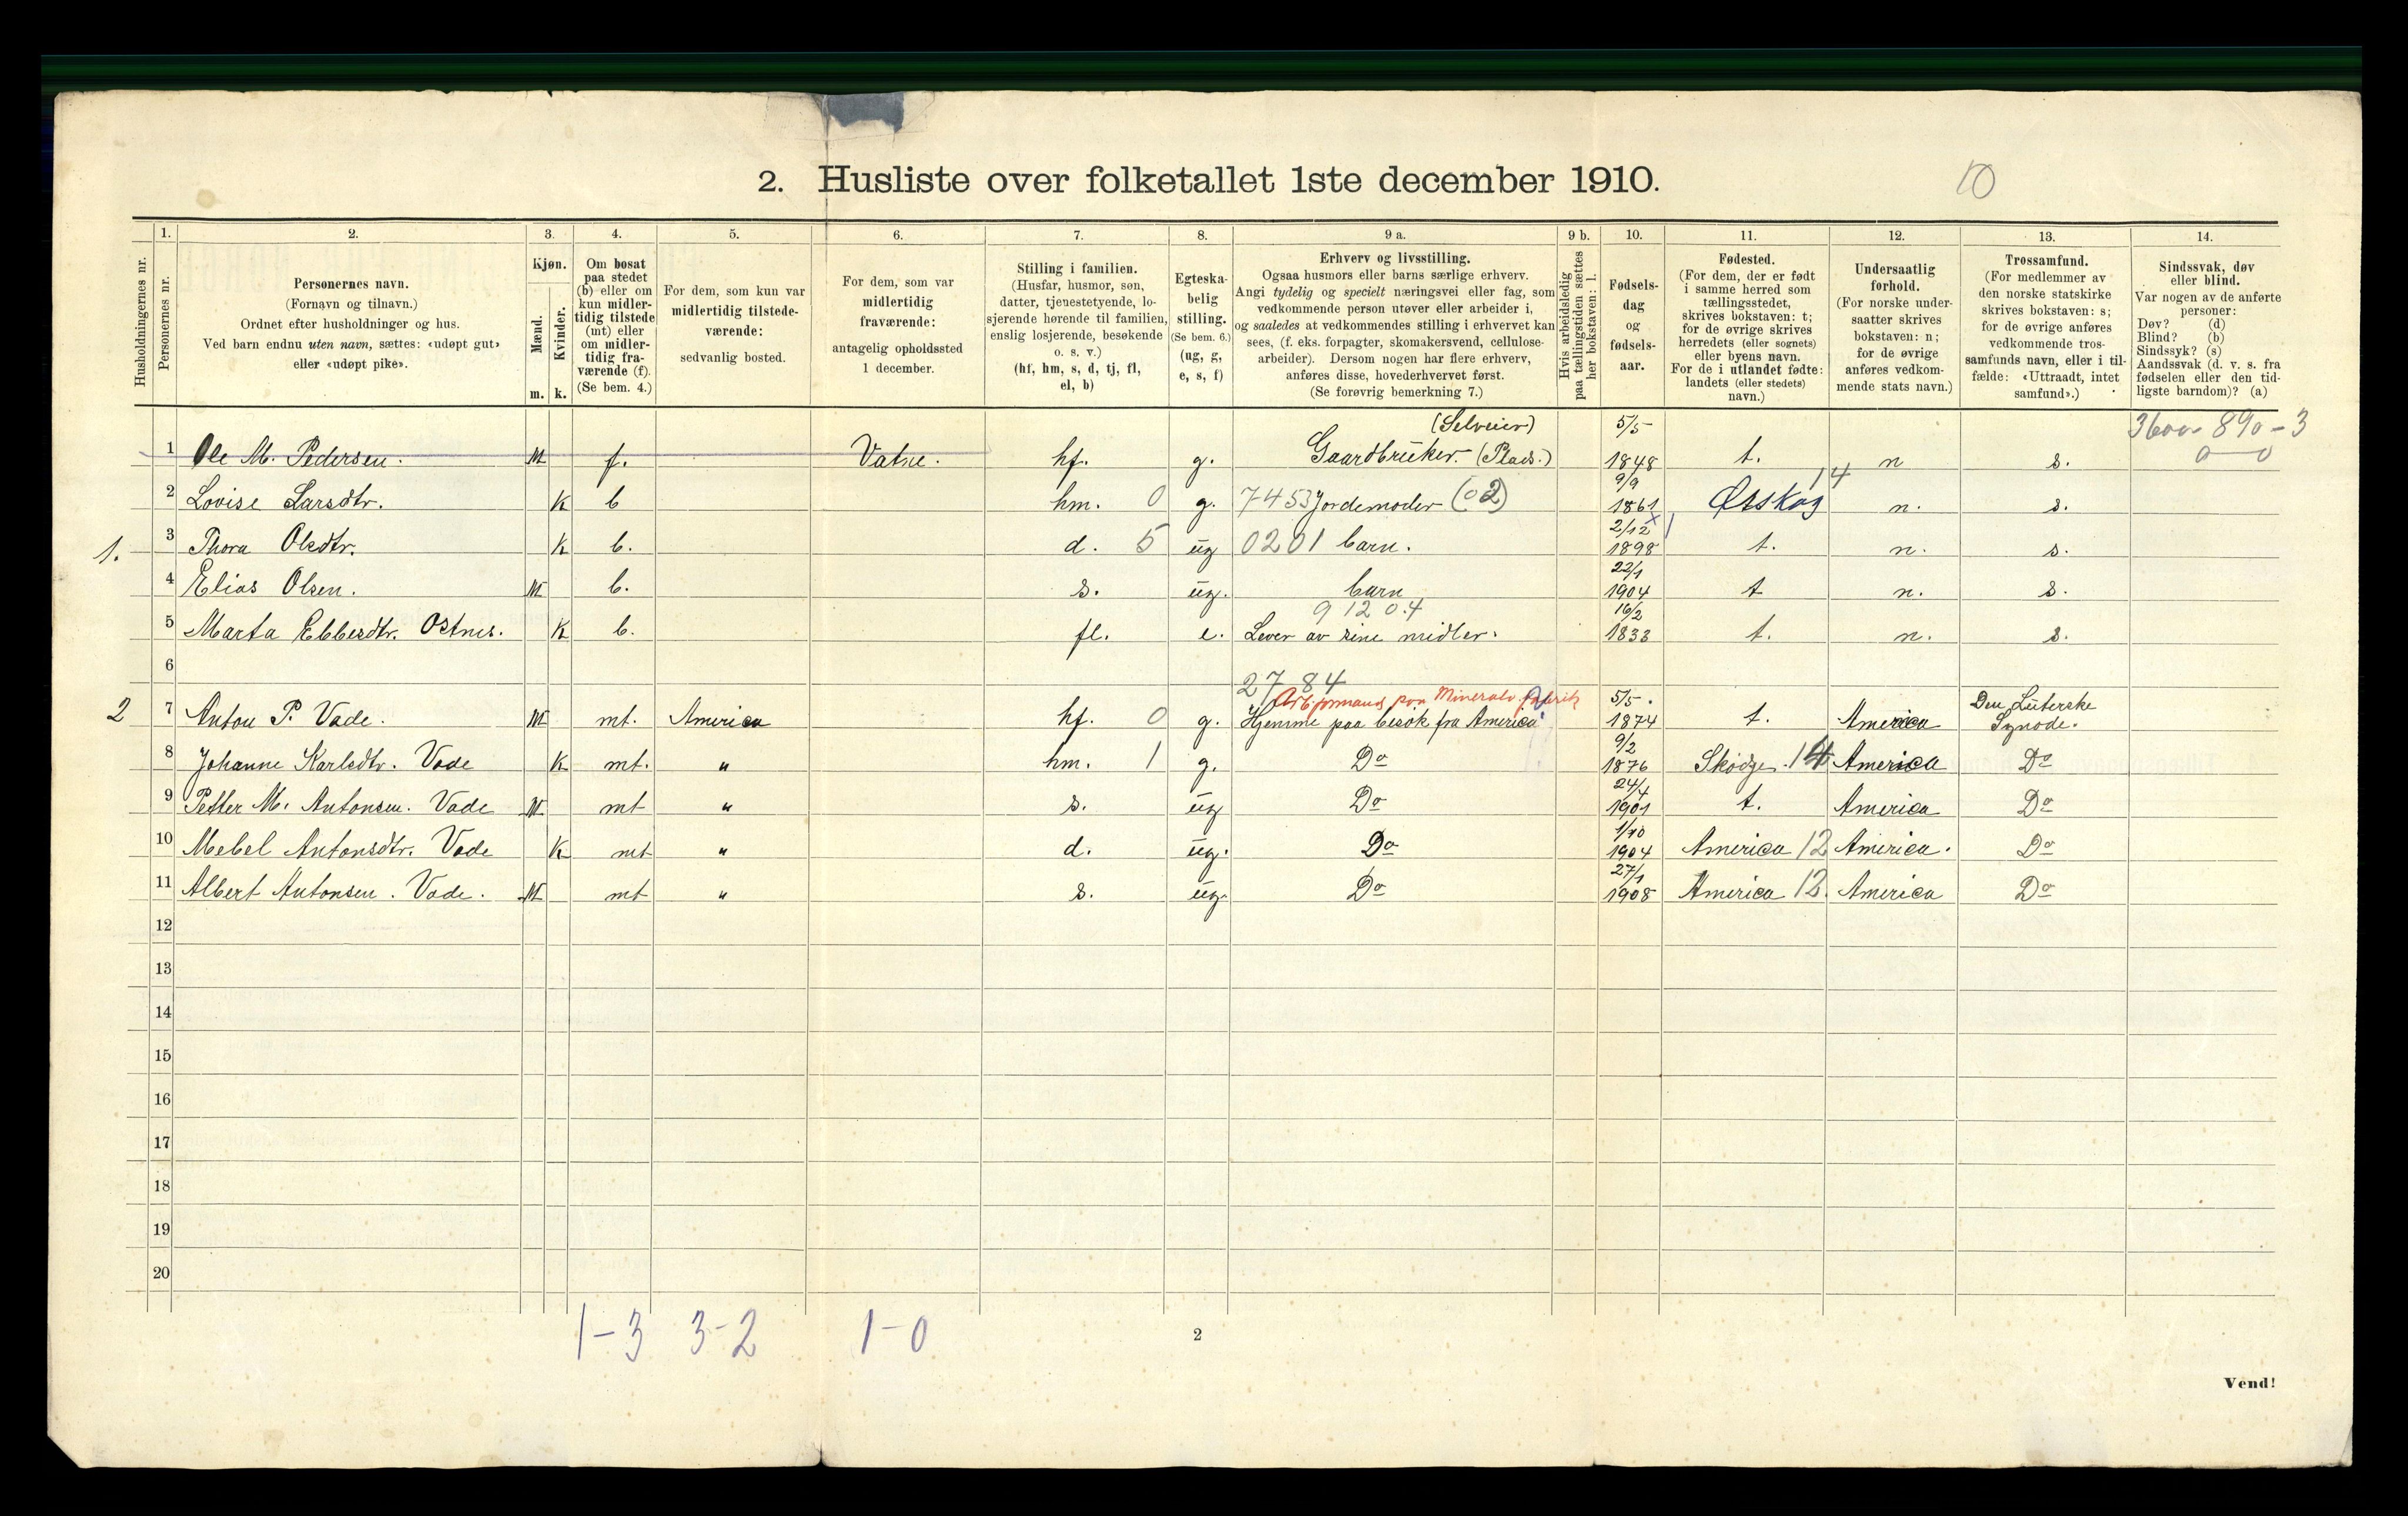 2. Husliste over folketallet 1ste december 1910.
10
Husholdningernes nr.
1.
Personernes nr.
2.
Personernes navn.
(Fornavn og tilnavn.)
Ordnet efter husholdninger og hus.
Ved barn endnu uten navn, sættes: «udøpt gut»
eller «udøpt pike».
3.
Kjøn.
Mænd.
Kvinder.
m. k.
4.
Om bosat
paa stedet
(b) eller om
kun midler-
tidig tilstede
(mt) eller
om midler-
tidig fra-
værende (f).
(Se bem. 4.)
5.
For dem, som kun var
midlertidig tilstede-
værende:
sedvanlig bosted.
6.
For dem, som var
midlertidig
fraværende:
antagelig opholdssted
1 december.
7.
Stilling i familien.
(Husfar, husmor, søn,
datter, tjenestetyende, lo-
sjerende hørende til familien,
enslig losjerende, besøkende
o. s. v.)
(hf, hm, s, d, tj, fl,
el, b)
8.
Egteska-
belig
stilling.
(Se bem. 6.)
(ug, g,
e, s, f)
9 a.
Erhverv og livsstilling.
Ogsaa husmors eller barns særlige erhverv.
Angi tydelig og specielt næringsvei eller fag, som
vedkommende person utøver eller arbeider i,
og saaledes at vedkommendes stilling i erhvervet kan
sees, (f. eks. forpagter, skomakersvend, cellulose-
arbeider). Dersom nogen har flere erhverv,
anføres disse, hovederhvervet først.
(Se forøvrig bemerkning 7.)
9 b.
Hvis arbeidsledig
paa tællingstiden sættes
her bokstaven: l.
10.
Fødsels-
dag
og
fødsels-
aar.
11.
Fødested.
(For dem, der er født
i samme herred som
tællingsstedet,
skrives bokstaven: t;
for de øvrige skrives
herredets (eller sognets)
eller byens navn.
For de i utlandet fødte:
landets (eller stedets)
navn.)
12.
Undersaatlig
forhold.
(For norske under-
saatter skrives
bokstaven: n;
for de øvrige
anføres vedkom-
mende stats navn.)
13.
Trossamfund.
(For medlemmer av
den norske statskirke
skrives bokstaven: s;
for de øvrige anføres
vedkommende tros-
samfunds navn, eller i til-
fælde: «Uttraadt, intet
samfund».)
14.
Sindssvak, døv
eller blind.
Var nogen av de anførte
personer:
Døv? (d)
Blind? (b)
Sindssyk? (s)
Aandssvak (d. v. s. fra
fødselen eller den tid-
ligste barndom)? (a)
(Selveier) 5/5 3600 - 890 - 3
1 Ole M. Pedersen. M f. Vatne. hf. g. Gaardbruker. (Plads.) 1848 t. n s. 0 0
9/9 14
2 Lovise Larsdtr. K b hm. 0 g. 7453 Jordemoder (02) 1861 Ørskog n. s.
2/12
1. 3 Thora Olsdtr. K b. d. 5 ug 0201 barn. 1898 t. n. s.
22/1
4 Elias Olsen. M b. s. ug. barn 1904 t n. s.
9120.4 16/2
5 Marta Ebbesdtr. Ostnes. K b. fl. e. Lever av sine midler. 1833 t. n. s.
6
2784
Arb.formand paa Mineralv.fabrik 5/5. Den Luterske
2 7 Anton P. Vade. M mt. America hf. 0 g. Hjemme paa besøk fra America 1874 t. America Synode.
9/2
8 Johanne Karlsdtr. Vade K mt. " hm. 1 g. Do 1876 Skodje. 14 America Do
24/4
9 Petter M. Antonsen. Vade M mt " s. ug Do 1901 t. America Do
1/10
10 Mebel Antonsdtr. Vade K mt " d. ug. Do 1904 America 12 America. Do
27/1
11 Albert Antonsen. Vade. M mt " s. ug. Do 1908 America 12. America Do
12
13
14
15
16
17
18
19
20
1-3 3-2 1-0
2
Vend!